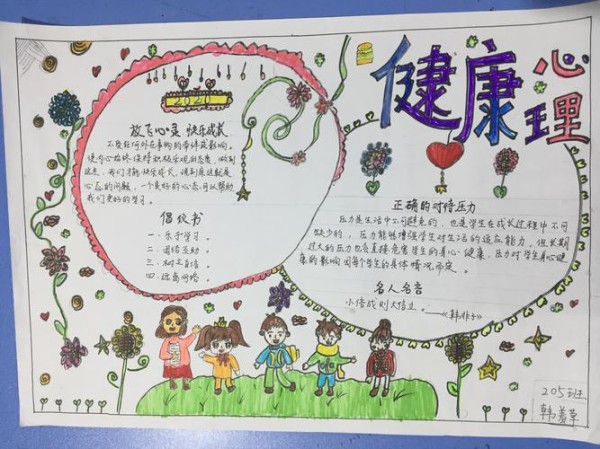 健康
心理
2020
放飞心灵 快乐成长
不受任何外在事物的牵绊或影响，
使内心始终保持积极乐观的态度，做到
这点，我们才能快乐成长。遇到烦恼就是
心态的问题，一个良好的心态可以帮助
我们更好的学习。
倡议书
一．乐于学习。
二．团结互动。
三．树立自信
四．远离网络。
正确的对待压力
压力是生活中不可避免的，也是学生在成长过程中不可
缺少的，压力能够增强学生对生活的适应能力。但长期
过大的压力也会直接危害学生的身心健康，压力对学生身心健
康的影响因每个学生的具体情况而定。
名人名言
小信成则大信立。——《韩非子》
205班